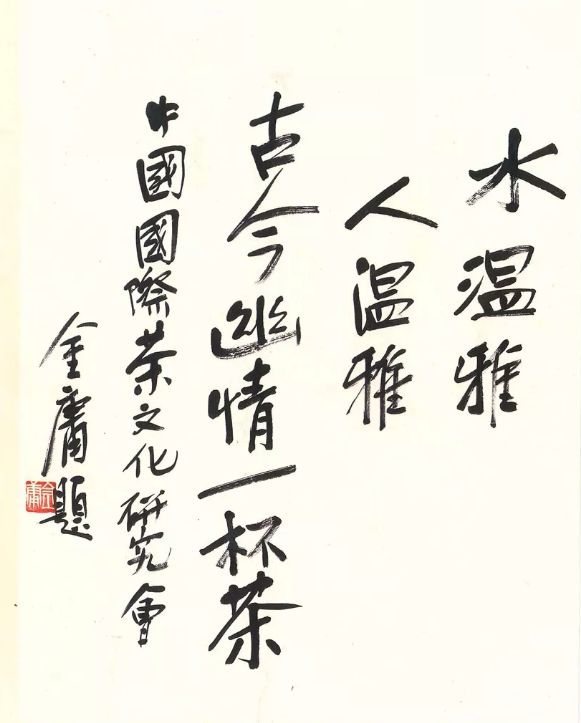 水温雅
人温雅
古今幽情一杯茶
中國國際茶文化研究會
金庸題
金庸